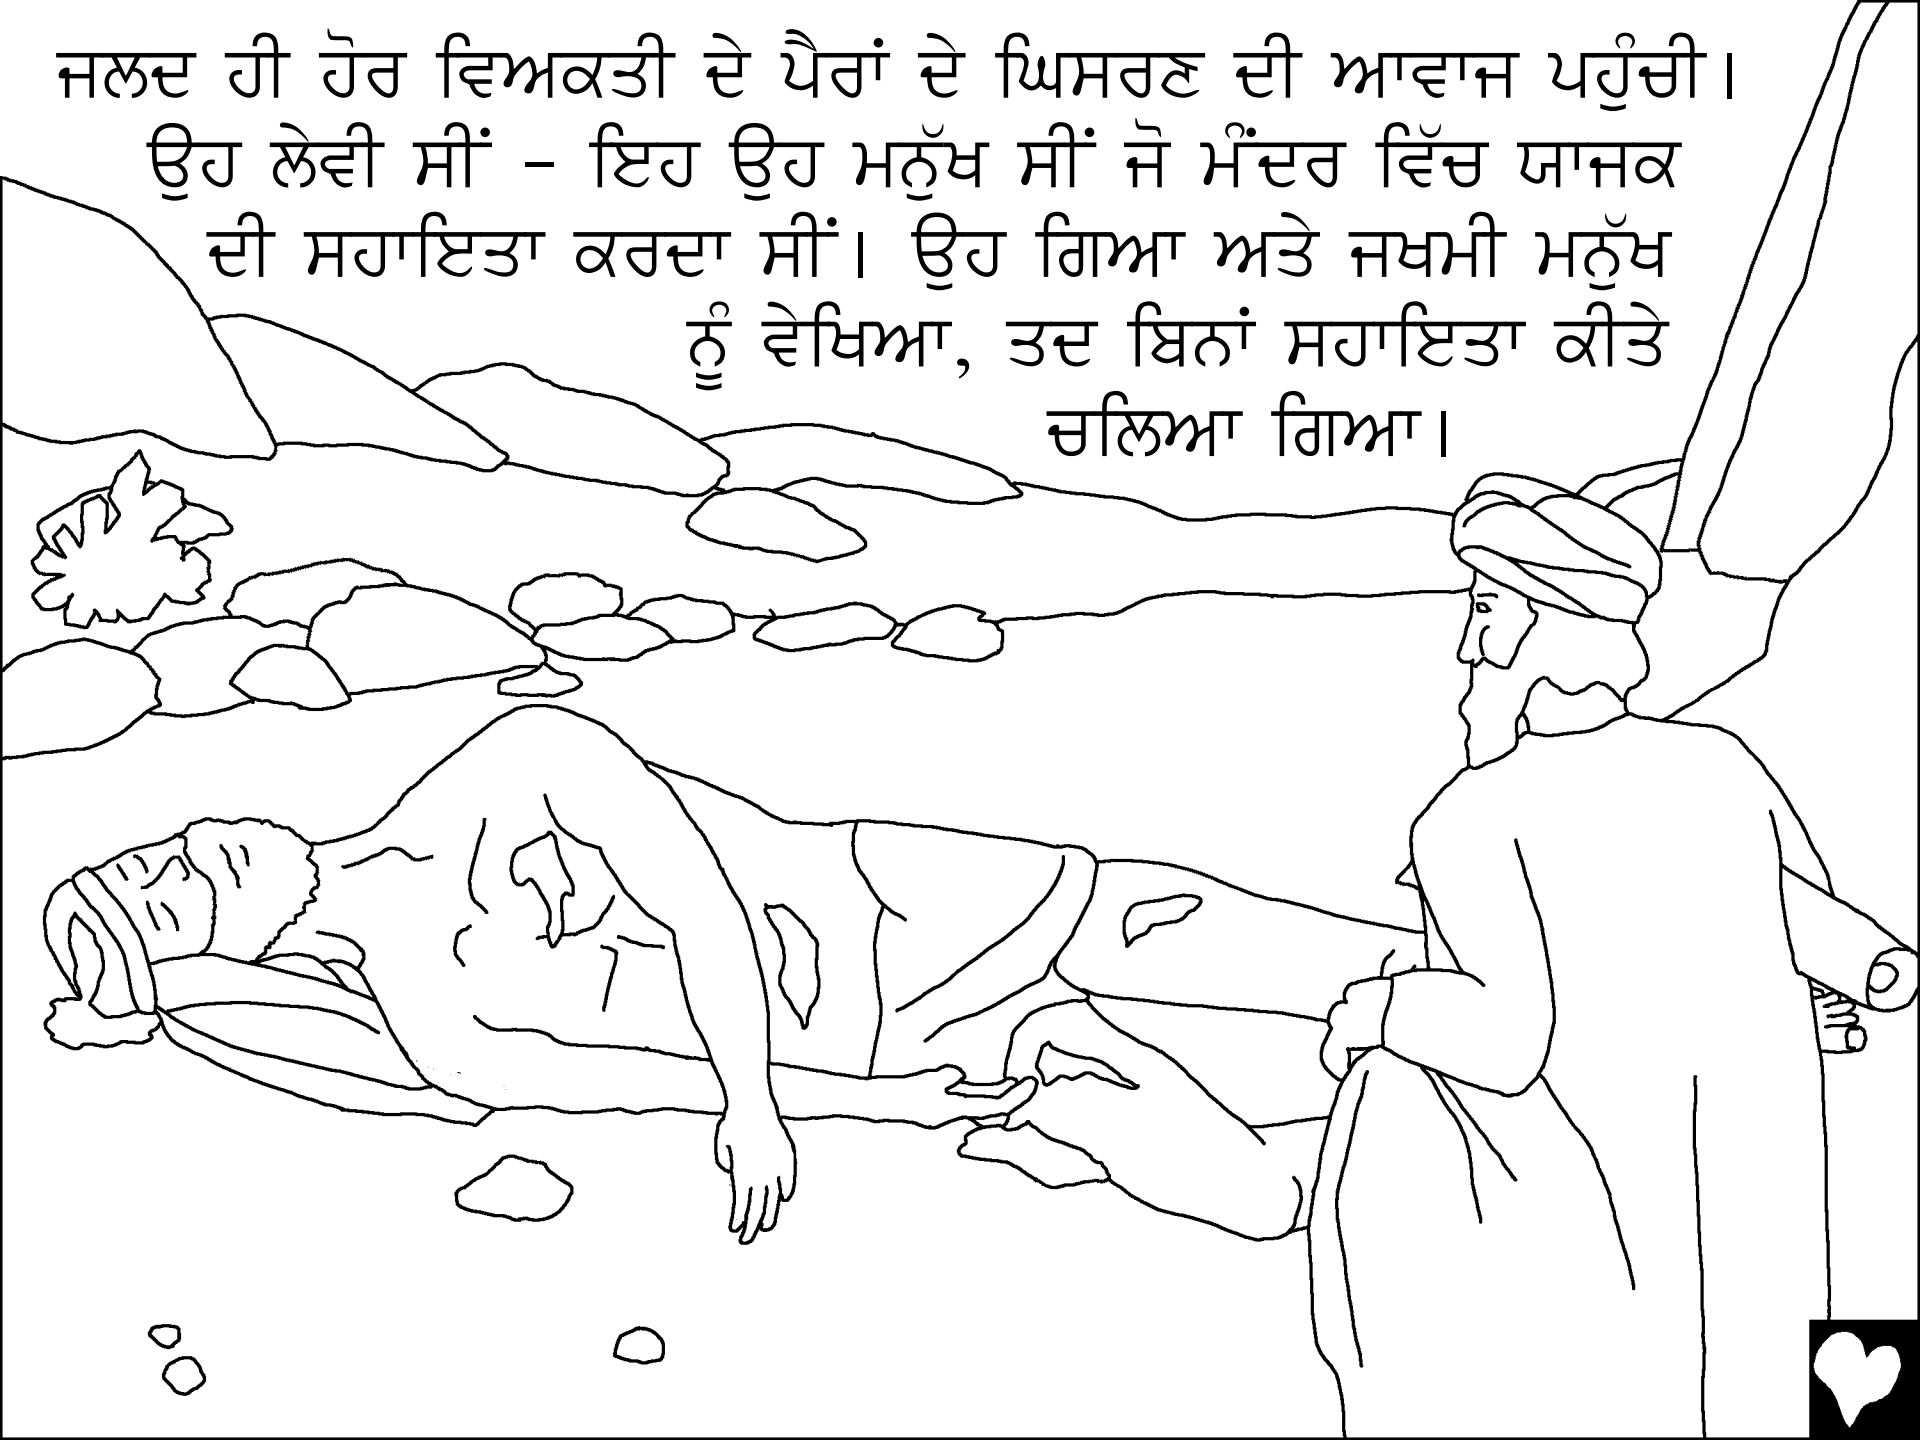 ਜਲਦ ਹੀ ਹੋਰ ਵਿਅਕਤੀ ਦੇ ਪੈਰਾਂ ਦੇ ਘਿਸਰਣ ਦੀ ਆਵਾਜ ਪਹੁੰਚੀ।
ਉਹ ਲੇਵੀ ਸੀਂ - ਇਹ ਉਹ ਮਨੁੱਖ ਸੀਂ ਜੋ ਮੰਦਰ ਵਿੱਚ ਯਾਜਕ
ਦੀ ਸਹਾਇਤਾ ਕਰਦਾ ਸੀਂ। ਉਹ ਗਿਆ ਅਤੇ ਜਖਮੀ ਮਨੁੱਖ
ਨੂੰ ਵੇਖਿਆ, ਤਦ ਬਿਨਾਂ ਸਹਾਇਤਾ ਕੀਤੇ
ਚਲਿਆ ਗਿਆ।